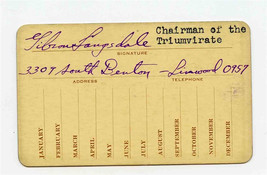 Chairman of the
Triumvirate
Gibson Langsdale
SIGNATURE
3309 South Benton - Linwood 0959
ADDRESS TELEPHONE
JANUARY
FEBRUARY
MARCH
APRIL
MAY
JUNE
JULY
AUGUST
SEPTEMBER
OCTOBER
NOVEMBER
DECEMBER